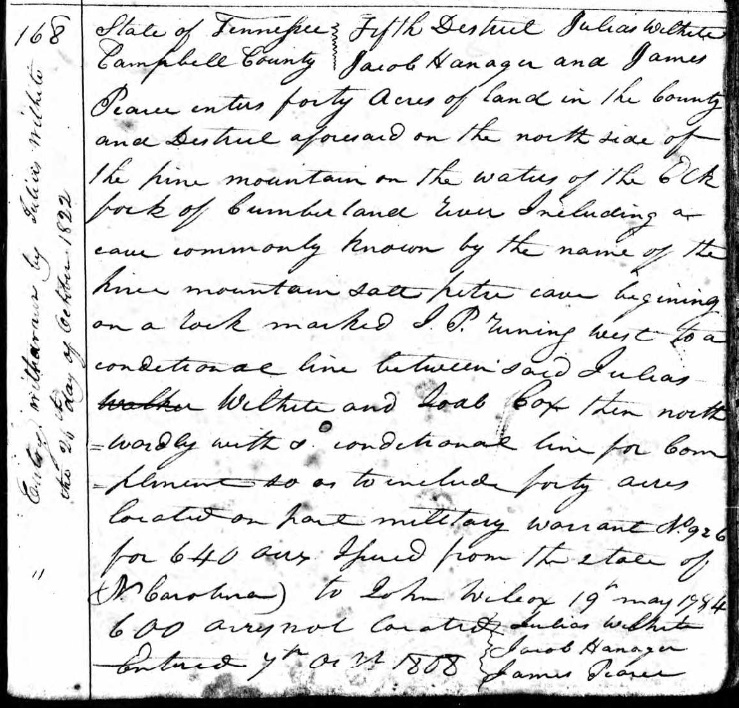 168
State of Tennessee } Fifth District Julias Wilhite
Campbell County } Jacob Hanager and James
Pearce enters forty Acres of land in the County
and District aforesaid on the north side of
the pine mountain on the waters of the Elk
fork of Cumberland River Including a
cave commonly known by the name of the
pine mountain salt petre cave begining
on a rock marked I. P. Runing west to a
conditional line between said Julias
Wilhite and Joab Cox then north
=wardly with sd conditional line for Com
=pliment so as to include forty acres
located on part military warrant No. 926
for 640 acres Issued from the state of
(N Carolina) to John Wilcox 19th may 1784
600 acres not located { Julias Wilhite
Entered 7th 1808 { Jacob Hanager
{ James Pearce
Entry withdrawn by Julias Wilhite
the day of October 1822
"